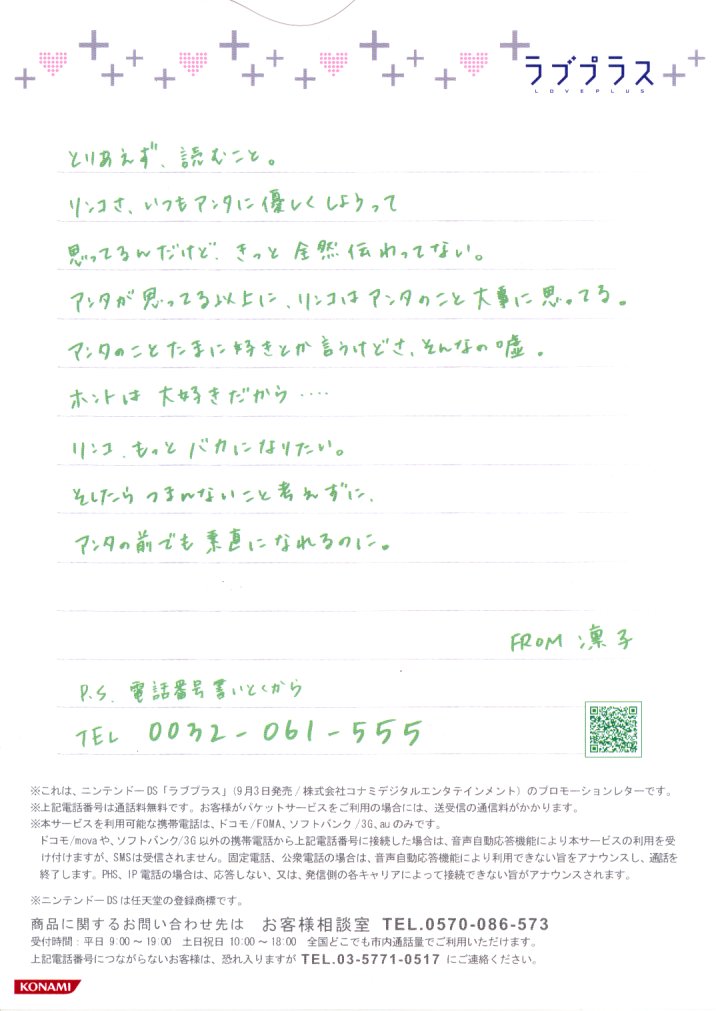 ラブプラス
LOVEPLUS
とりあえず、読むこと。
リンコさ、いつもアンタに優しくしようって
思ってるんだけど、きっと全然伝わってない。
アンタが思ってる以上に、リンコはアンタのこと大事に思ってる。
アンタのことたまに好きとか言うけどさ、そんなの嘘。
ホントは大好きだから‥‥
リンコ、もっとバカになりたい。
そしたらつまんないこと考えずに、
アンタの前でも素直になれるのに。
FROM 凛子
P.S. 電話番号書いとくから
TEL 0032-061-555
※これは、ニンテンドーDS「ラブプラス」(9月3日発売/株式会社コナミデジタルエンタテインメント)のプロモーションレターです。
※上記電話番号は通話料無料です。お客様がパケットサービスをご利用の場合には、送受信の通信料がかかります。
※本サービスを利用可能な携帯電話は、ドコモ/FOMA、ソフトバンク/3G、auのみです。
ドコモ/movaや、ソフトバンク/3G以外の携帯電話から上記電話番号に接続した場合は、音声自動応答機能により本サービスの利用を受
け付けますが、SMSは受信されません。固定電話、公衆電話の場合は、音声自動応答機能により利用できない旨をアナウンスし、通話を
終了します。PHS、IP電話の場合は、応答しない、又は、発信側の各キャリアによって接続できない旨がアナウンスされます。
※ニンテンドーDSは任天堂の登録商標です。
商品に関するお問い合わせ先は お客様相談室 TEL.0570-086-573
受付時間:平日 9:00~19:00 土日祝日 10:00~18:00 全国どこでも市内通話量でご利用いただけます。
上記電話番号につながらないお客様は、恐れ入りますが TEL.03-5771-0517 にご連絡ください。
KONAMI